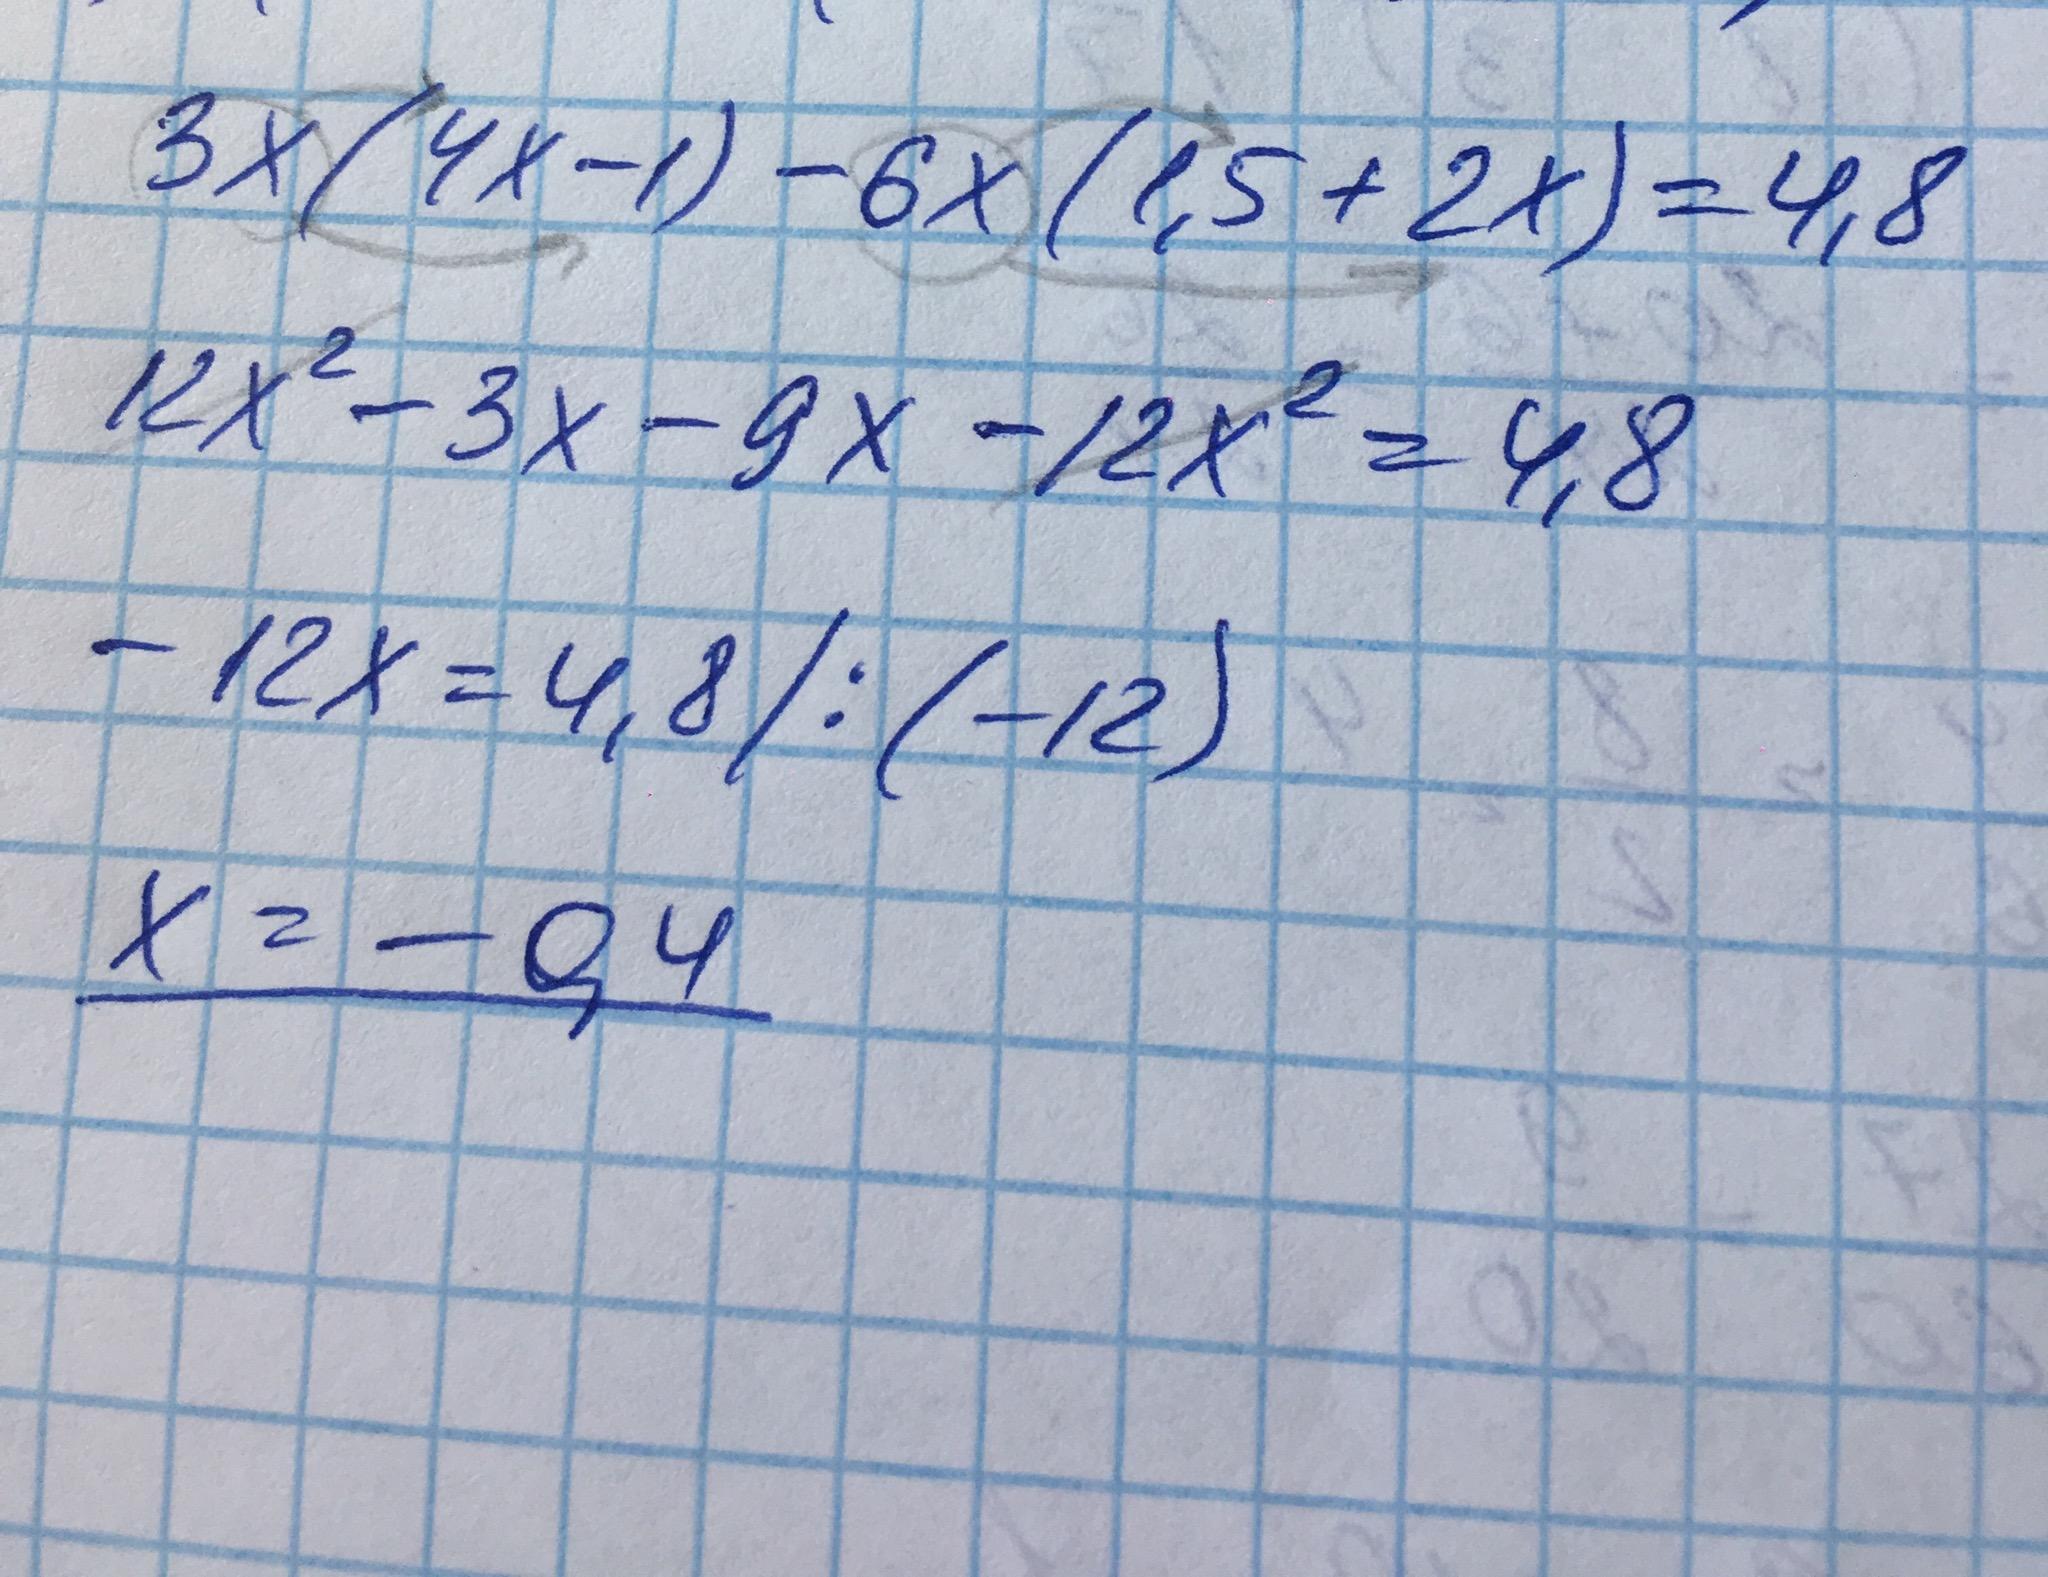 3x(4x-1)-6x(1,5+2x)=4,8
12x²-3x-9x-12x²=4,8
-12x=4,8/:(-12)
x=-0,4